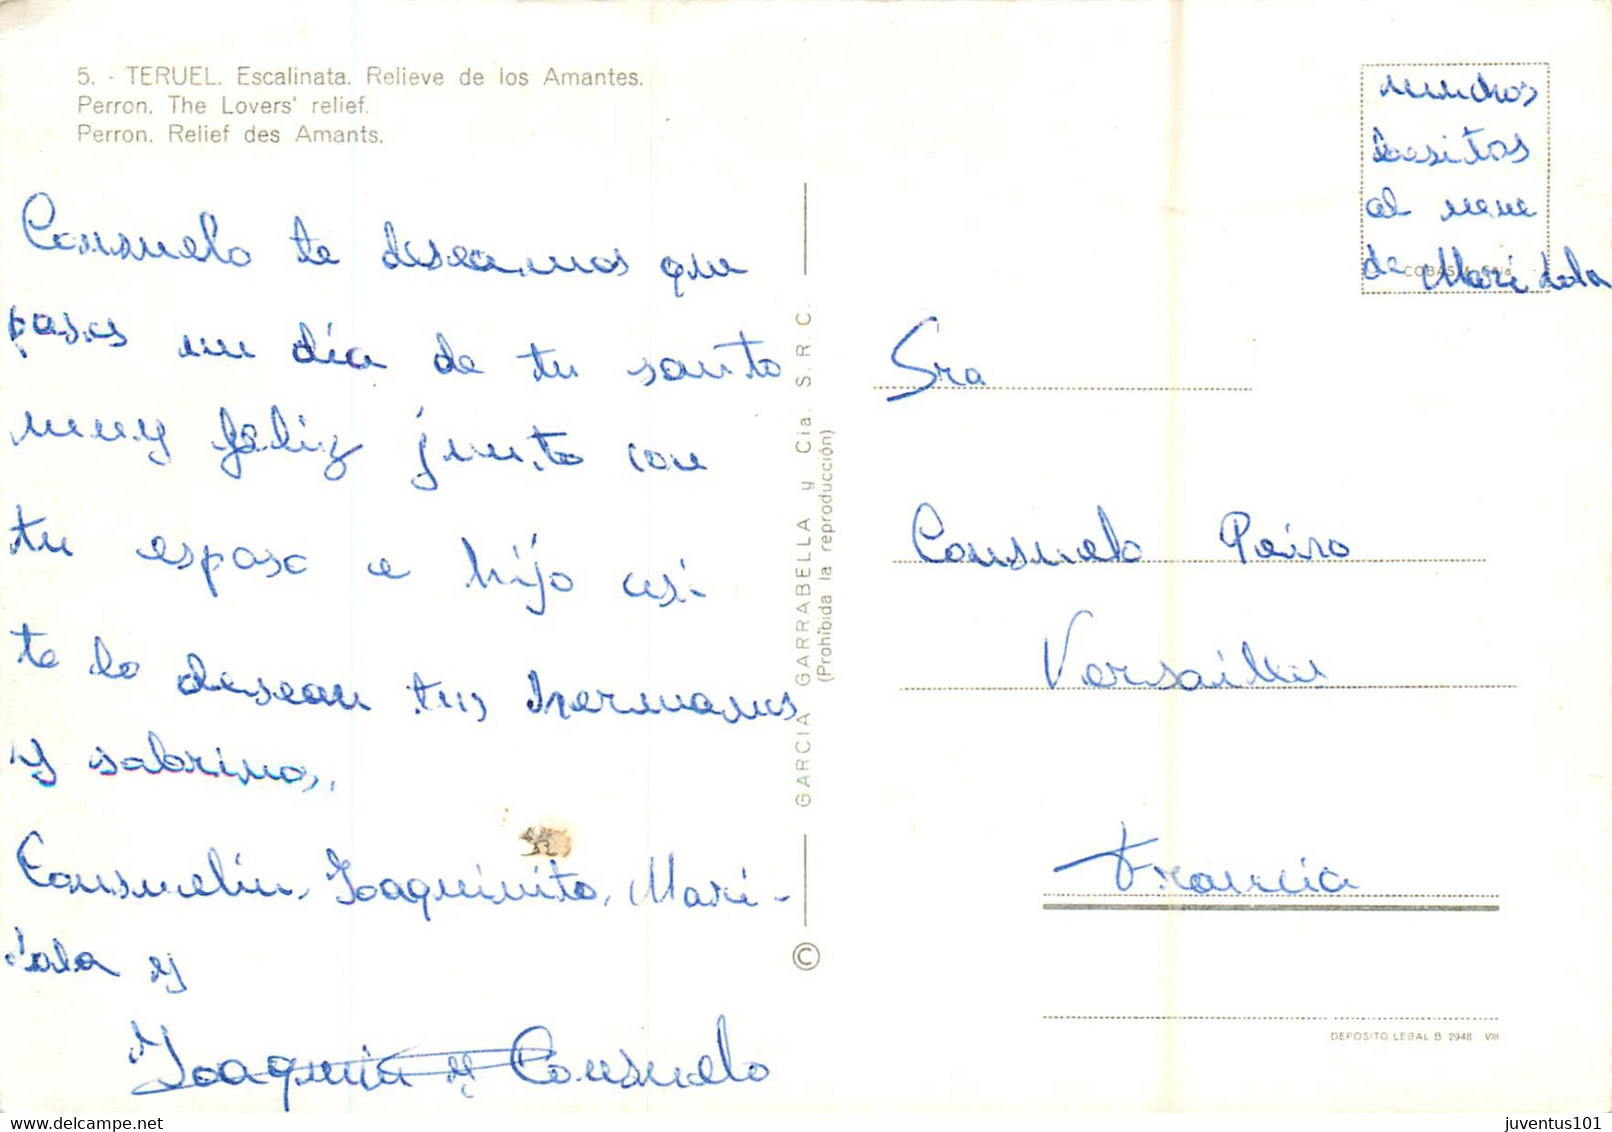 5. - TERUEL. Escalinata. Relieve de los Amantes.
Perron. The Lovers' relief.
Perron. Relief des Amants.
Consuelo te deseamos que
pases un dia de tu santo
muy feliz junto con
tu esposo e hijo asi
te lo desean tus hermanos
y sobrinos.
Consuelin, Joaquinito, Mari-
Lola y
Joaquin y Consuelo
GARCIA GARRABELLA y Cia. S. R. C.
(Prohibida la reproducción)
©
muchos
besitos
al nene
de Mari Lola
Sra
Consuelo Peiro
Versailles
Francia
DEPOSITO LEGAL B. 2948 VIII
juventus101